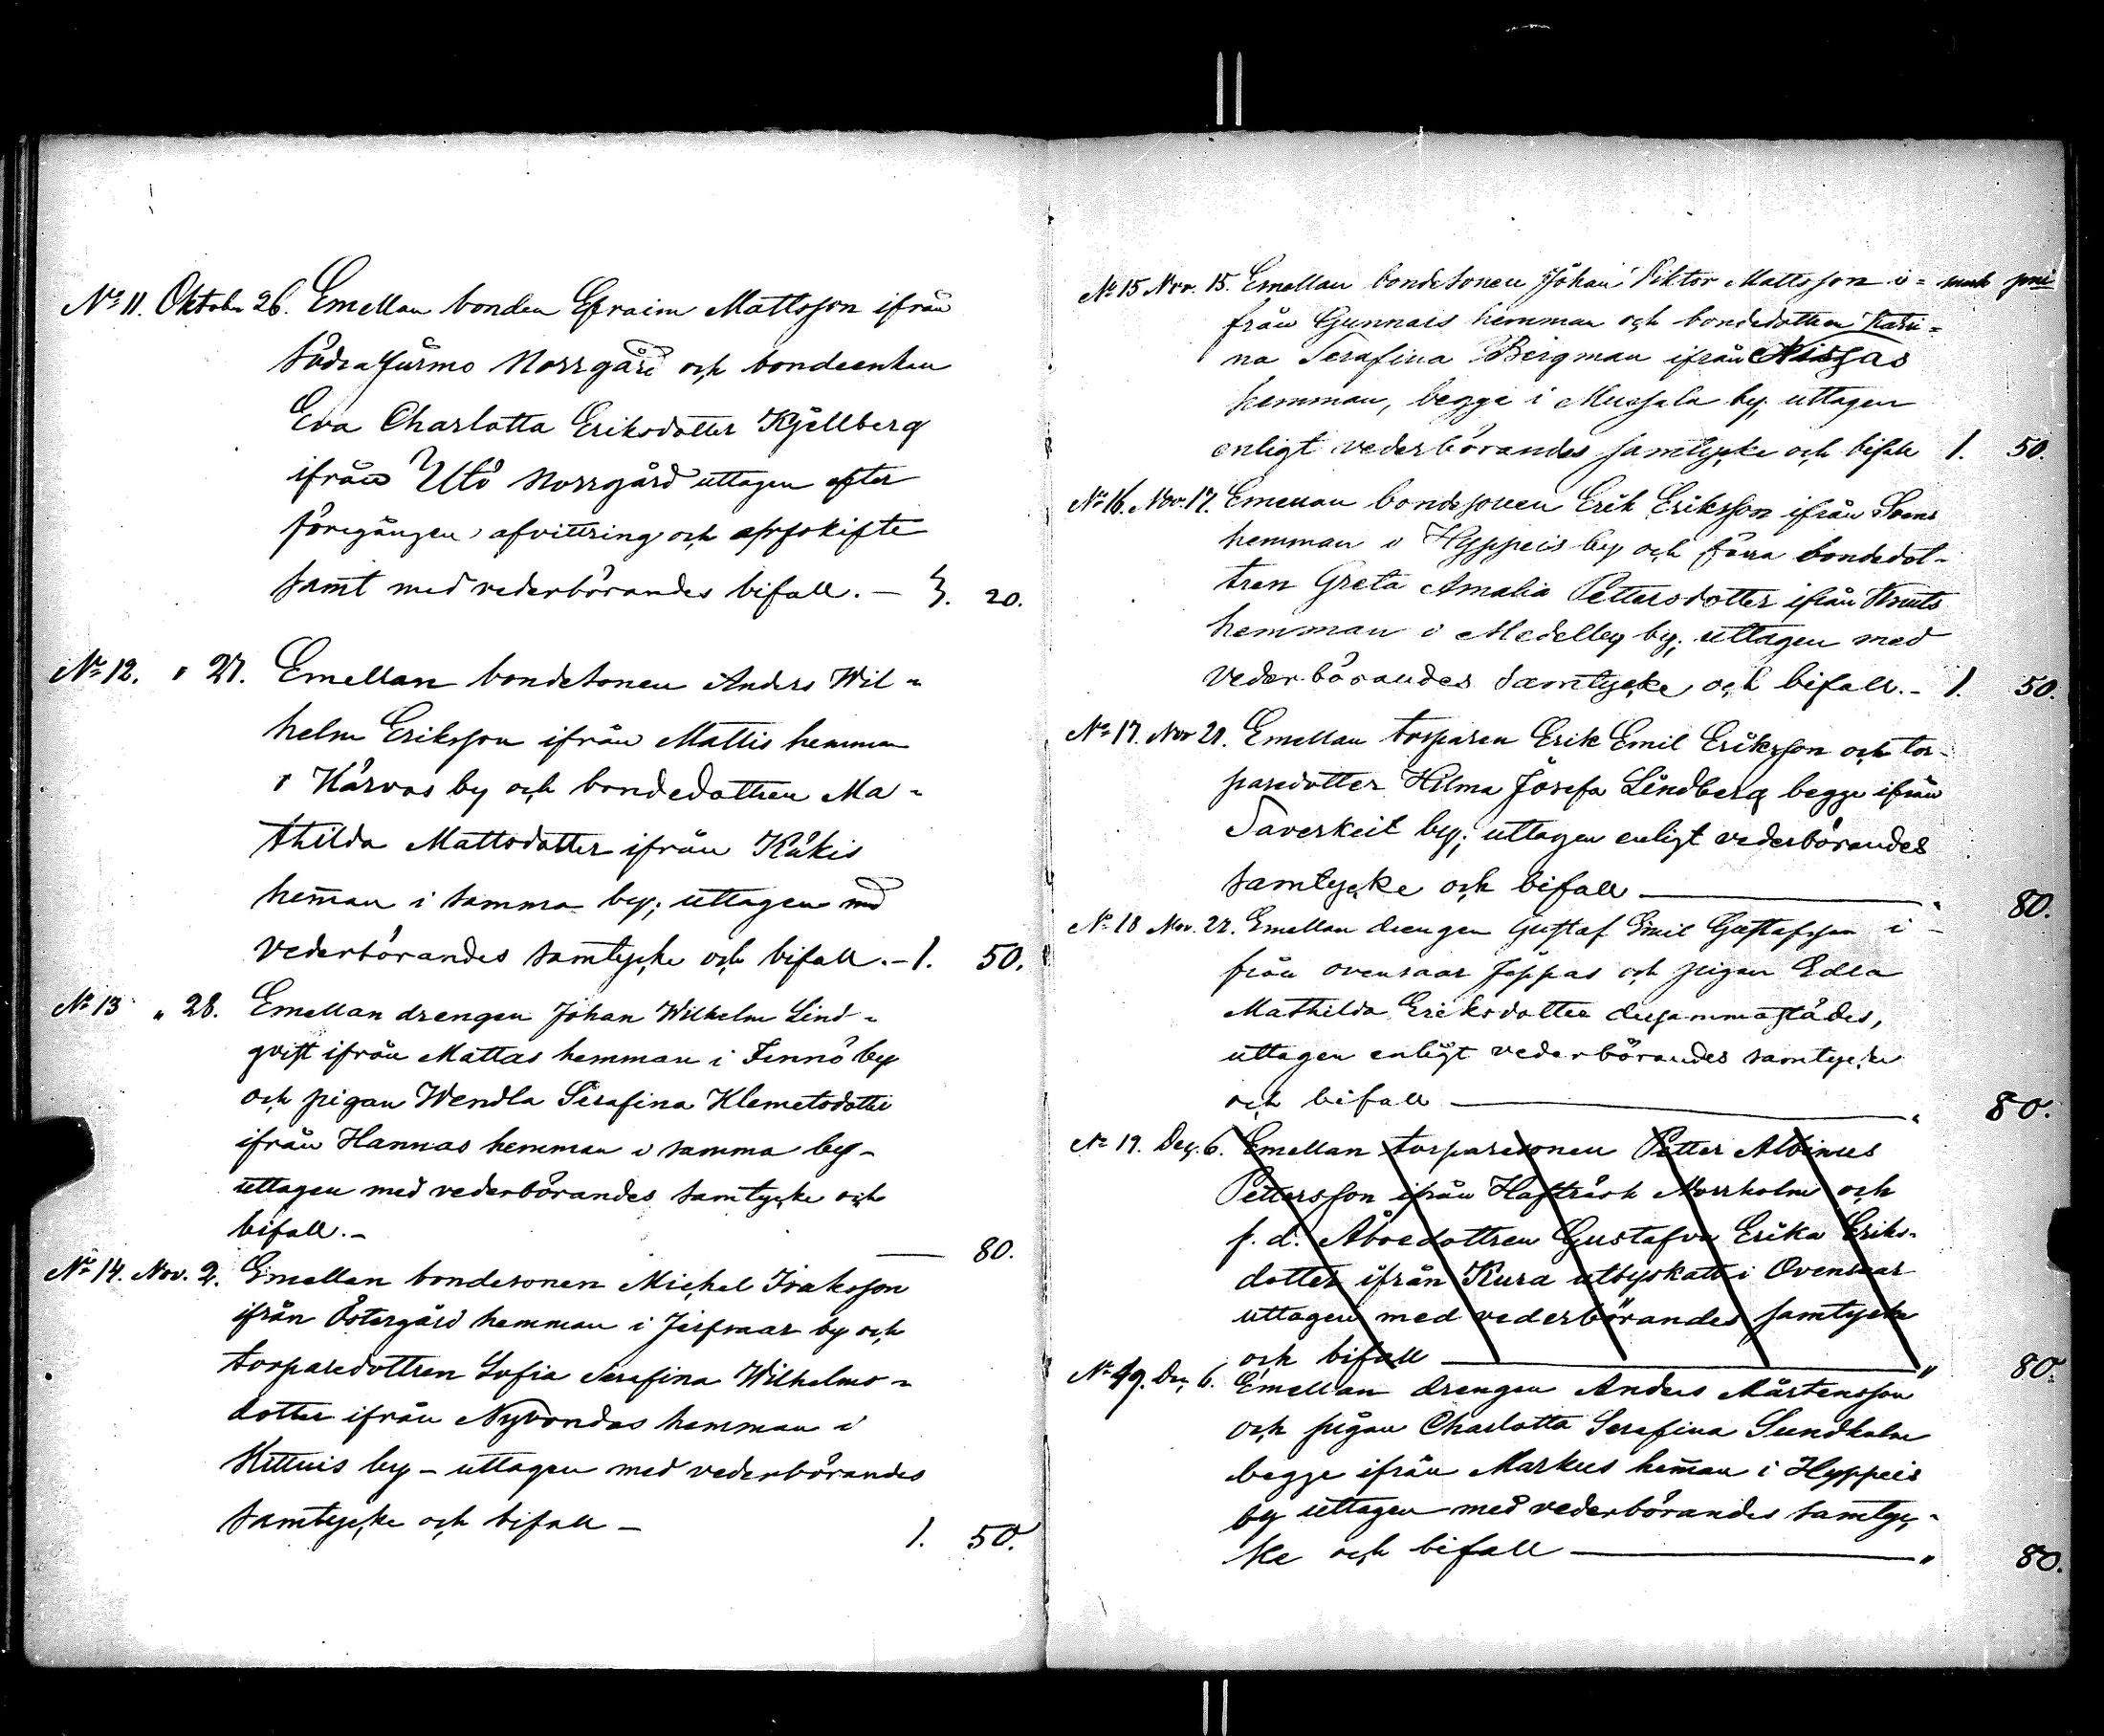 No 11. Oktober 26. Emellan bonden Efraim Mattsson ifrån
Södra Jurmo Norrgård och bondeenkan
Eva Charlotta Eriksdotter Kjellberg
ifrån Utö Norrgård uttagen efter
föregången afvittring och arfskifte
samt med vederbörandes bifall. — 3. 20.
No 12. " 27. Emellan bondesonen Anders Wil-
helm Eriksson ifrån Mattis hemman
i Kårvas by och bondedottren Ma-
thilda Mattsdotter ifrån Kåkis
hem̄an i samma by; uttagen med
vederbörandes samtycke och bifall. - 1. 50.
No 13 " 28. Emellan drengen Johan Wilhelm Lind-
qvist ifrån Mattas hemman i Finnö by
och pigan Wendla Serafina Klemetsdotter
ifrån Hannas hemman i samma by -
uttagen med vederbörandes samtycke och
bifall. - — 80.
No 14. Nov. 2. Emellan bondesonen Michel Isaksson
ifrån Östergård hemman i Jerfsmar by och
torparedottren Sofia Serafina Wilhelms-
dotter ifrån Nybondas hemman i
Kittuis by - uttagen med vederbörandes
samtycke och bifall - 1. 50.
No 15 Nov. 15. Emellan bondesonen Johan Viktor Mattsson i= mark pni
från Gunnars hemman och bondedottren Katri=
na Serafina Bergman ifrån Nissas
hemman, begge i Mussala by, uttagen
enligt vederbörandes samtycke och bifall 1. 50.
No 16. Nov. 17. Emellan bondesonen Erik Eriksson ifrån Svens
hemman i Hyppeis by och förra bondedot-
tren Greta Amalia Pettersdotter ifrån Knuts
hemman i Medelby by; uttagen med
vederbörandes samtycke och bifall. - 1. 50.
No 17. Nov 21. Emellan torparen Erik Emil Eriksson och tor-
paredotter Hilma Josefa Lindberg begge ifrån
Saverkeit by; uttagen enligt vederbörandes
samtycke och bifall — " 80.
No 18 Nov. 22. Emellan drengen Gustaf Emil Gustafsson i-
från Ovensaar Jöppas och pigan Edla
Mathilda Eriksdotter dersammastädes,
uttagen enligt vederbörandes samtycke
och bifall — " 80.
No 19. Dec. 6. Emellan torparesonen Petter Albinus
Pettersson ifrån Hafträsk Norrholm och
f. d. Åboedottren Gustafva Erika Eriks-
dotter ifrån Kura utbyskatt i Ovensaar
uttagen med vederbörandes samtycke
och bifall — " 80.
No 19. Dec 6. Emellan drengen Anders Mårtensson
och pigan Charlotta Serafina Sundholm
begge ifrån Markus hem̄an i Hyppeis
by uttagen med vederbörandes samtyc-
ke och bifall — " 80.